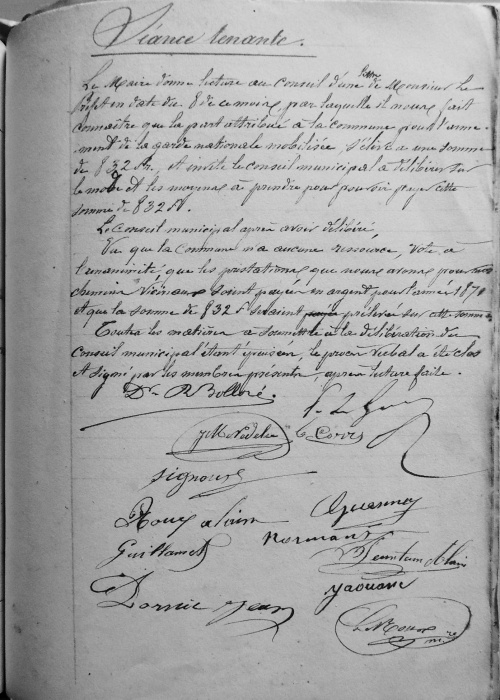 Séance tenante.
Le Maire donne lecture au Conseil d'une lettre de Monsieur Le
Préfet en date du 8 de ce mois, par laquelle il nous fait
connaître que la part attribuée à la commune pour l'arme-
ment de la garde nationale mobilisée, s'élève à une somme
de 832 fr. et invite le conseil municipal à délibérer sur
le mode et les moyens à prendre pour pouvoir payer cette
somme de 832 fr.
Le Conseil municipal après avoir délibéré,
Vu que la Commune n'a aucune ressource, vote à
l'unanimité, que les prestations que nous avons pour nos
chemins vicinaux soient payées en argent pour l'année 1871
et que la somme de 832 f seraient prélevée sur cette somme.
Toutes les matières à soumettre à la délibération du
Conseil municipal étant épuisées, le procès verbal a été clos
et signé par les membres présents, après lecture faite.
Dr. R Bolloré.
J M Nédelec Le Corre
Signour
Rouz alain Guennou
Guillamet Normant
alain
Dornic Jean Yaouanc
Le Roux
mre